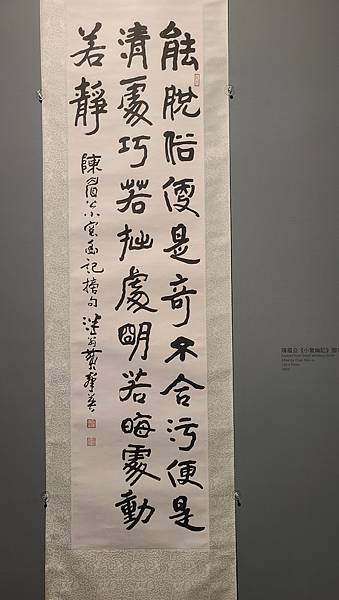 能脫俗便是奇不合污便是
清處巧若拙處明若晦處動
若靜
陳眉公小窓幽記摘句
陳眉公《小窗幽記》